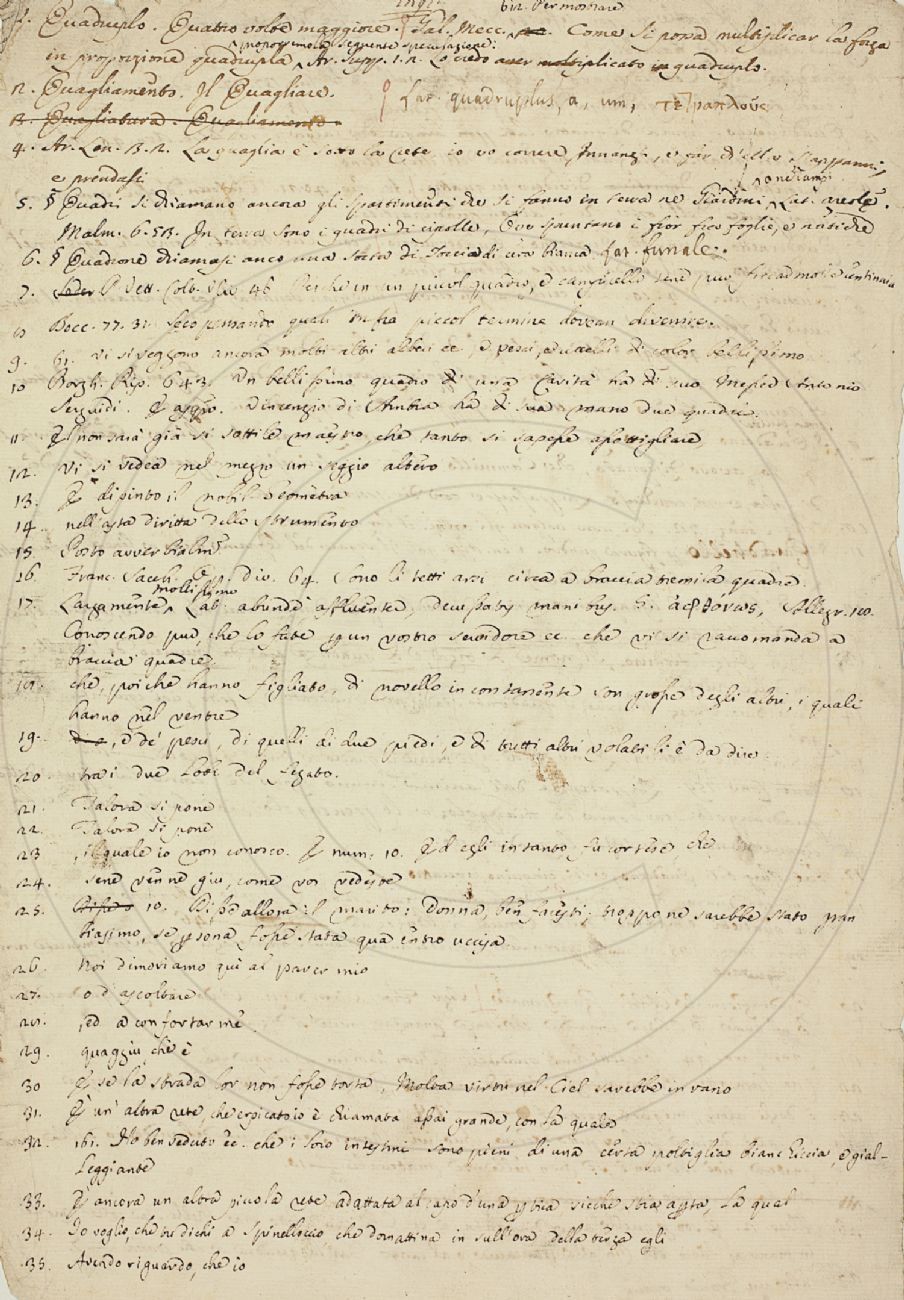 Per mostrare
1. Quadruplo. Quattro volte maggiore. Gal. Mecc. Come si possa multiplicar la forza
proporremo la seguente speculazione:
in proporzione quadrupla Ar. Supp. 1. 2. Lo credo aver multiplicato in quadruplo.
2. Quagliamento. Il Quagliare. Lat. quadruplus, a, um, τετραπλοῦς
3. Quagliatura. Quagliamento.
4. Ar. Len. 3. 2. La quaglia è sotto la rete, io vo correre Innanzi, e far
e prendasi
5. § Quadri si chiamano ancora gli spartimenti che si fanno in terra ne' Giardini, Lat. areolę.
Malm. 6. 53. In terra sono i quadri di cipolle, Ove spuntano i fior fra foglie, e natiche
6. § Quadrone chiamasi anco una sorta di Torcia di cera bianca Lat. funale.
7. P. Vett. Colt. 46 Perchè in un piccol quadro, e campicello se ne può ficcar molte centinaia
8 Bocc. 77. 31. Seco pensando quali infra piccol termine dovean divenire.
9. 61. Vi si veggono ancora molti altri alberi ec. e pesci, e uccelli di color bellissimo
10 Borgh. Rip. 643. Un bellissimo quadro di una Carità ha di suo Messer Antonio
Serguidi. E appo. Vincenzio di Ambra ha di sua mano due quadri.
11 E non sarà già sì sottile maestro, che tanto si sapesse assottigliare,
12. Vi si vedea nel mezzo un seggio altero
13. E dipinto il nobil geometra
14. nell'asta diritta dello strumento
15. Posto avverbialm.
16. Franc. Sacch. Op. div. 64. Sono li tetti arsi circa a braccia tremila quadre.
moltissimo
17. Largamente, Lat. abundè affluenter, Allegr. 120.
Conoscendo pur, che lo fate per un vostro servidore ec. che vi si raccomanda a
braccia quadre
18. che, poichè hanno figliato, di novello incontanente son grosse degli altri, i quali
hanno nel ventre
19. , e de' pesci, di quelli di due piedi, e di tutti altri volatili è da dire
20 tra i due lobi del fegato.
21. Talora si pone
22. Talora si pone
23 , il quale io non conosco. E num. 10. Ed egli intanto fu cortese, che
24. sene venne giù, come voi vedeste
25. 10. Disse allora il marito: donna, ben facesti; troppo ne sarebbe stato gran
biasimo, se persona fosse stata qua entro uccisa
26. Noi dimoriamo quì al parer mio
27. o d'ascoltare
28. , ed a confortarme
29. quaggiù, che è
30 E se la strada lor non fosse torta, Molta virtù nel Ciel sarebbe in vano
31. E un'altra rete, che erpicatoio è chiamata assai grande, con la quale
32. 161. Ho ben veduto ec. che i loro intestini sono pieni di una certa poltiglia bianchiccia, e gial-
leggiante
33. E ancora un'altra piccola rete adattata al capo d'una pertica sicchè stia aperta, la qual
34. Io voglio, che tu dichi a Spinelloccio che domattina in sull'ora della terza egli
35. Avendo riguardo, che io